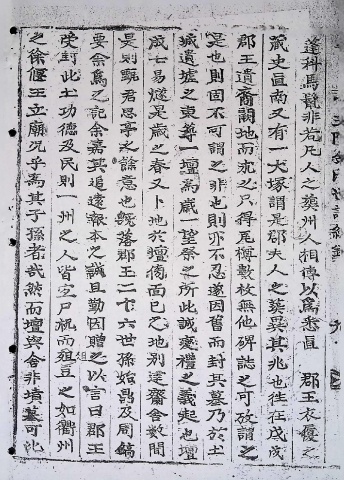 蓬科馬鬣非若凡人之葬州人相傳以爲悉直 郡王衣履之
藏史且南又有一大塚謂是郡夫人之葬其兆也往在戊戌
郡王遺裔調地而求之只得尾樽數枚無他碑誌之可攷謂之
是也則固不可謂之非也則亦不忍遂因舊而封其墓乃於土
城遺墟之東尊一壇爲歲一望祭之所此誠褒禮之義起也壇
成士易燧是歲之春又卜地於壇傍面巳之地別建齋舍數間
是則甄君思亭之餘意也旣落郡王二十六世孫始鼎及周鎬
要余爲之記余嘉其追遠報本之誠且勤因贈之以言曰郡王
受封此土功德及民則一州之人皆宜尸祝而俎豆之如衢州
之徐偃王立廟況乎爲其子孫者哉然而壇與舍非墳墓可比